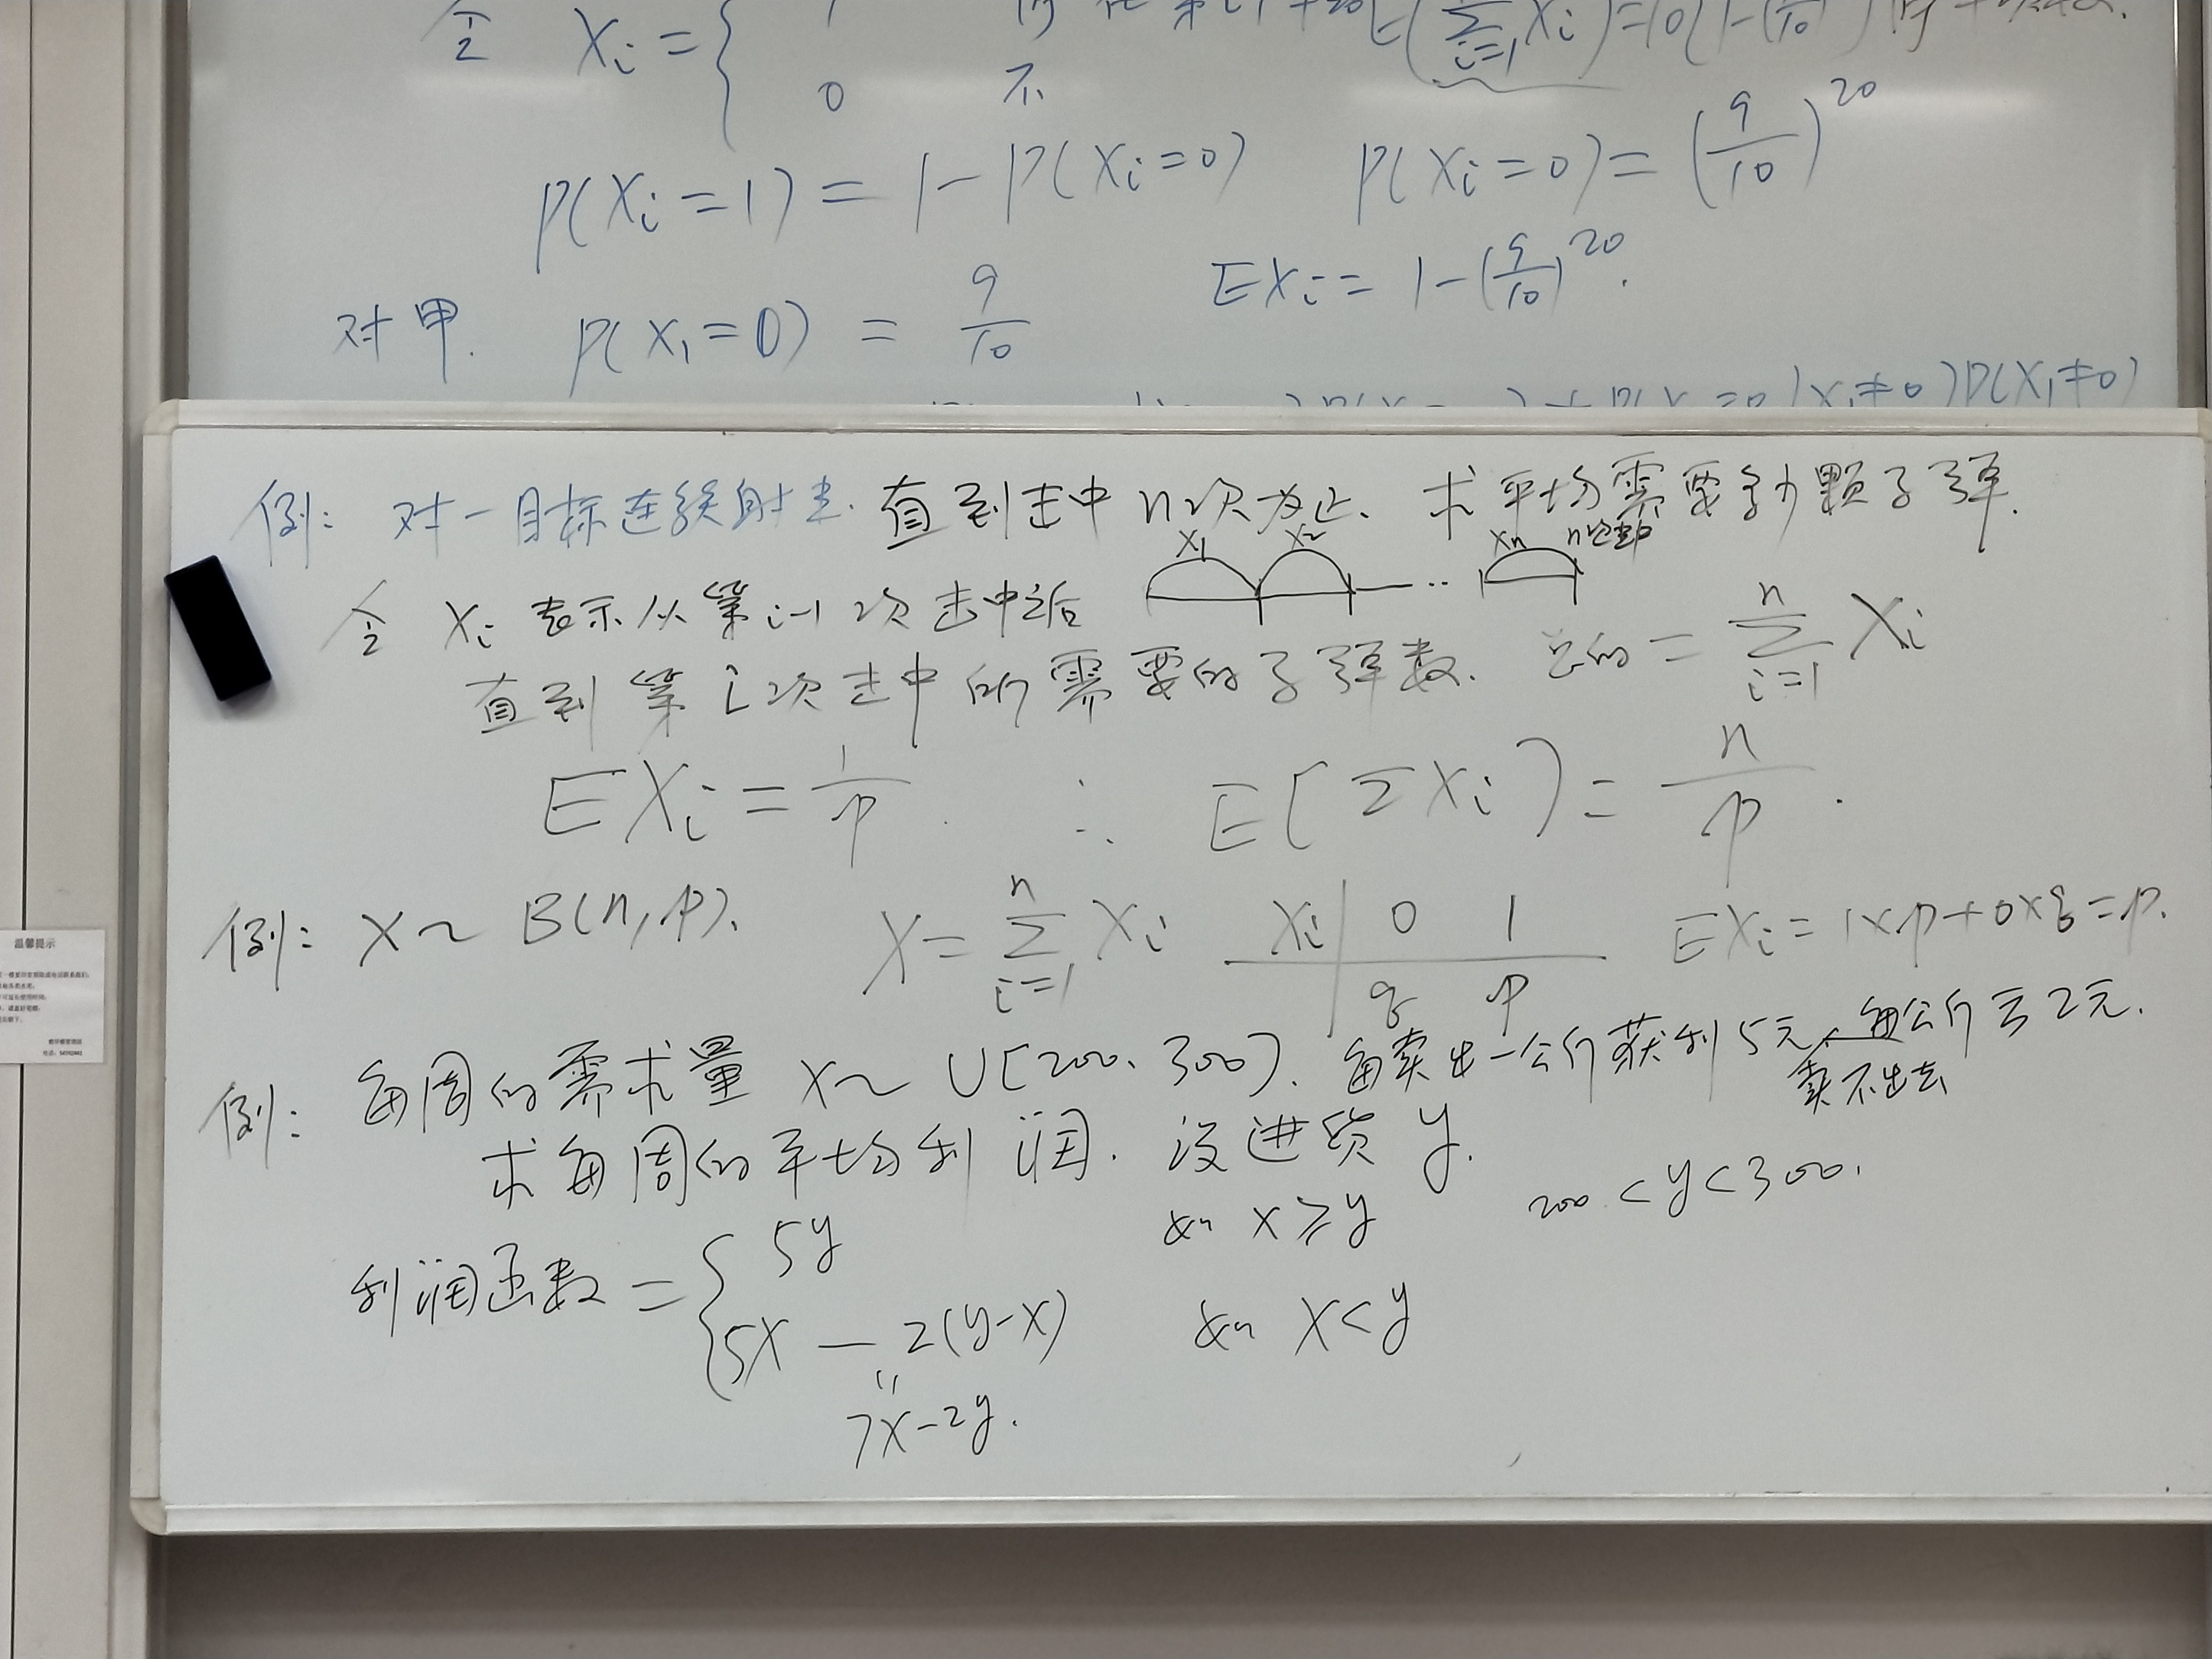 令 Xi = { 1
0 不
E(∑ i=1 Xi) = 10(1-(9/10)
P(Xi=1) = 1-P(Xi=0) P(Xi=0) = (9/10)^20
EXi = 1-(9/10)^20.
对甲. P(X1=0) = 9/10
X1≠0)P(X1≠0)
例: 对一目标连续射击. 直到击中n次为止. 求平均需要多少颗子弹.
X1 X2 ‥ Xn n次击中
令 Xi 表示从第i-1次击中后
直到第i次击中所需要的子弹数. 总的 = ∑ i=1 n Xi
EXi = 1/p. ∴ E(∑Xi) = n/p.
例: X~B(n,p). X = ∑ i=1 n Xi Xi | 0 1 EXi = 1×p+0×q=p.
q p
例: 每周的需求量 X~U[200,300). 每卖出一公斤获利5元, 每公斤亏2元.
卖不出去
求每周的平均利润. 设进货 y.
200<y<300.
利润函数 = { 5y 如 X≥y
5X - 2(y-X) 如 X<y
"
7X-2y.
温馨提示